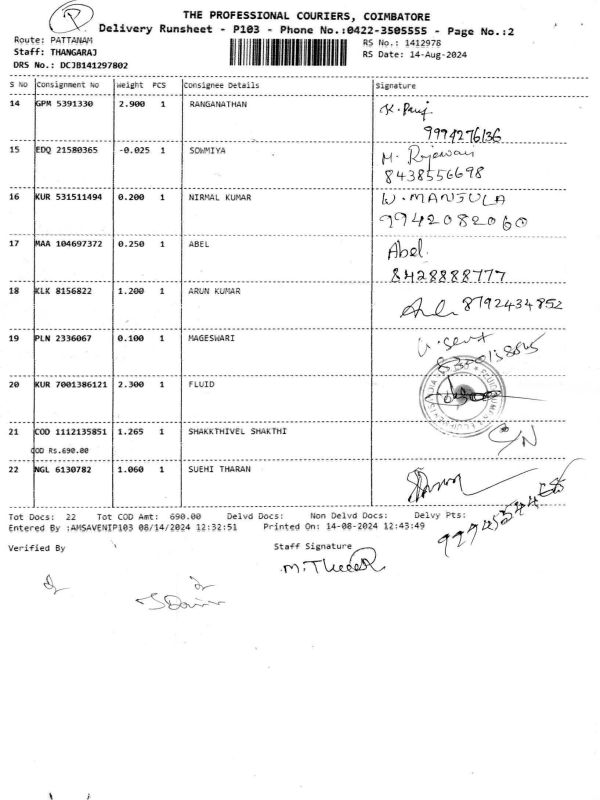 P
THE PROFESSIONAL COURIERS, COIMBATORE
Delivery Runsheet - P103 - Phone No.:0422-3505555 - Page No.:2
Route: PATTANAM
RS No.: 1412978
Staff: THANGARAJ
RS Date: 14-Aug-2024
DRS No.: DCJB141297802
S No Consignment No Weight PCS Consignee Details Signature
14 GPM 5391330 2.900 1 RANGANATHAN
9994276136
15 EDQ 21580365 -0.025 1 SOWMIYA
8438556698
16 KUR 531511494 0.200 1 NIRMAL KUMAR W.MANJULA
9942082060
17 MAA 104697372 0.250 1 ABEL Abel.
8428888777
18 KLK 8156822 1.200 1 ARUN KUMAR
8792434852
19 PLN 2336067 0.100 1 MAGESWARI
20 KUR 7001386121 2.300 1 FLUID
21 COD 1112135851 1.265 1 SHAKKTHIVEL SHAKTHI
COD Rs.690.00
22 NGL 6130782 1.060 1 SUEHI THARAN
Tot Docs: 22 Tot COD Amt: 690.00 Delvd Docs: Non Delvd Docs: Delvy Pts:
Entered By :AMSAVENIP103 08/14/2024 12:32:51 Printed On: 14-08-2024 12:43:49
Verified By Staff Signature